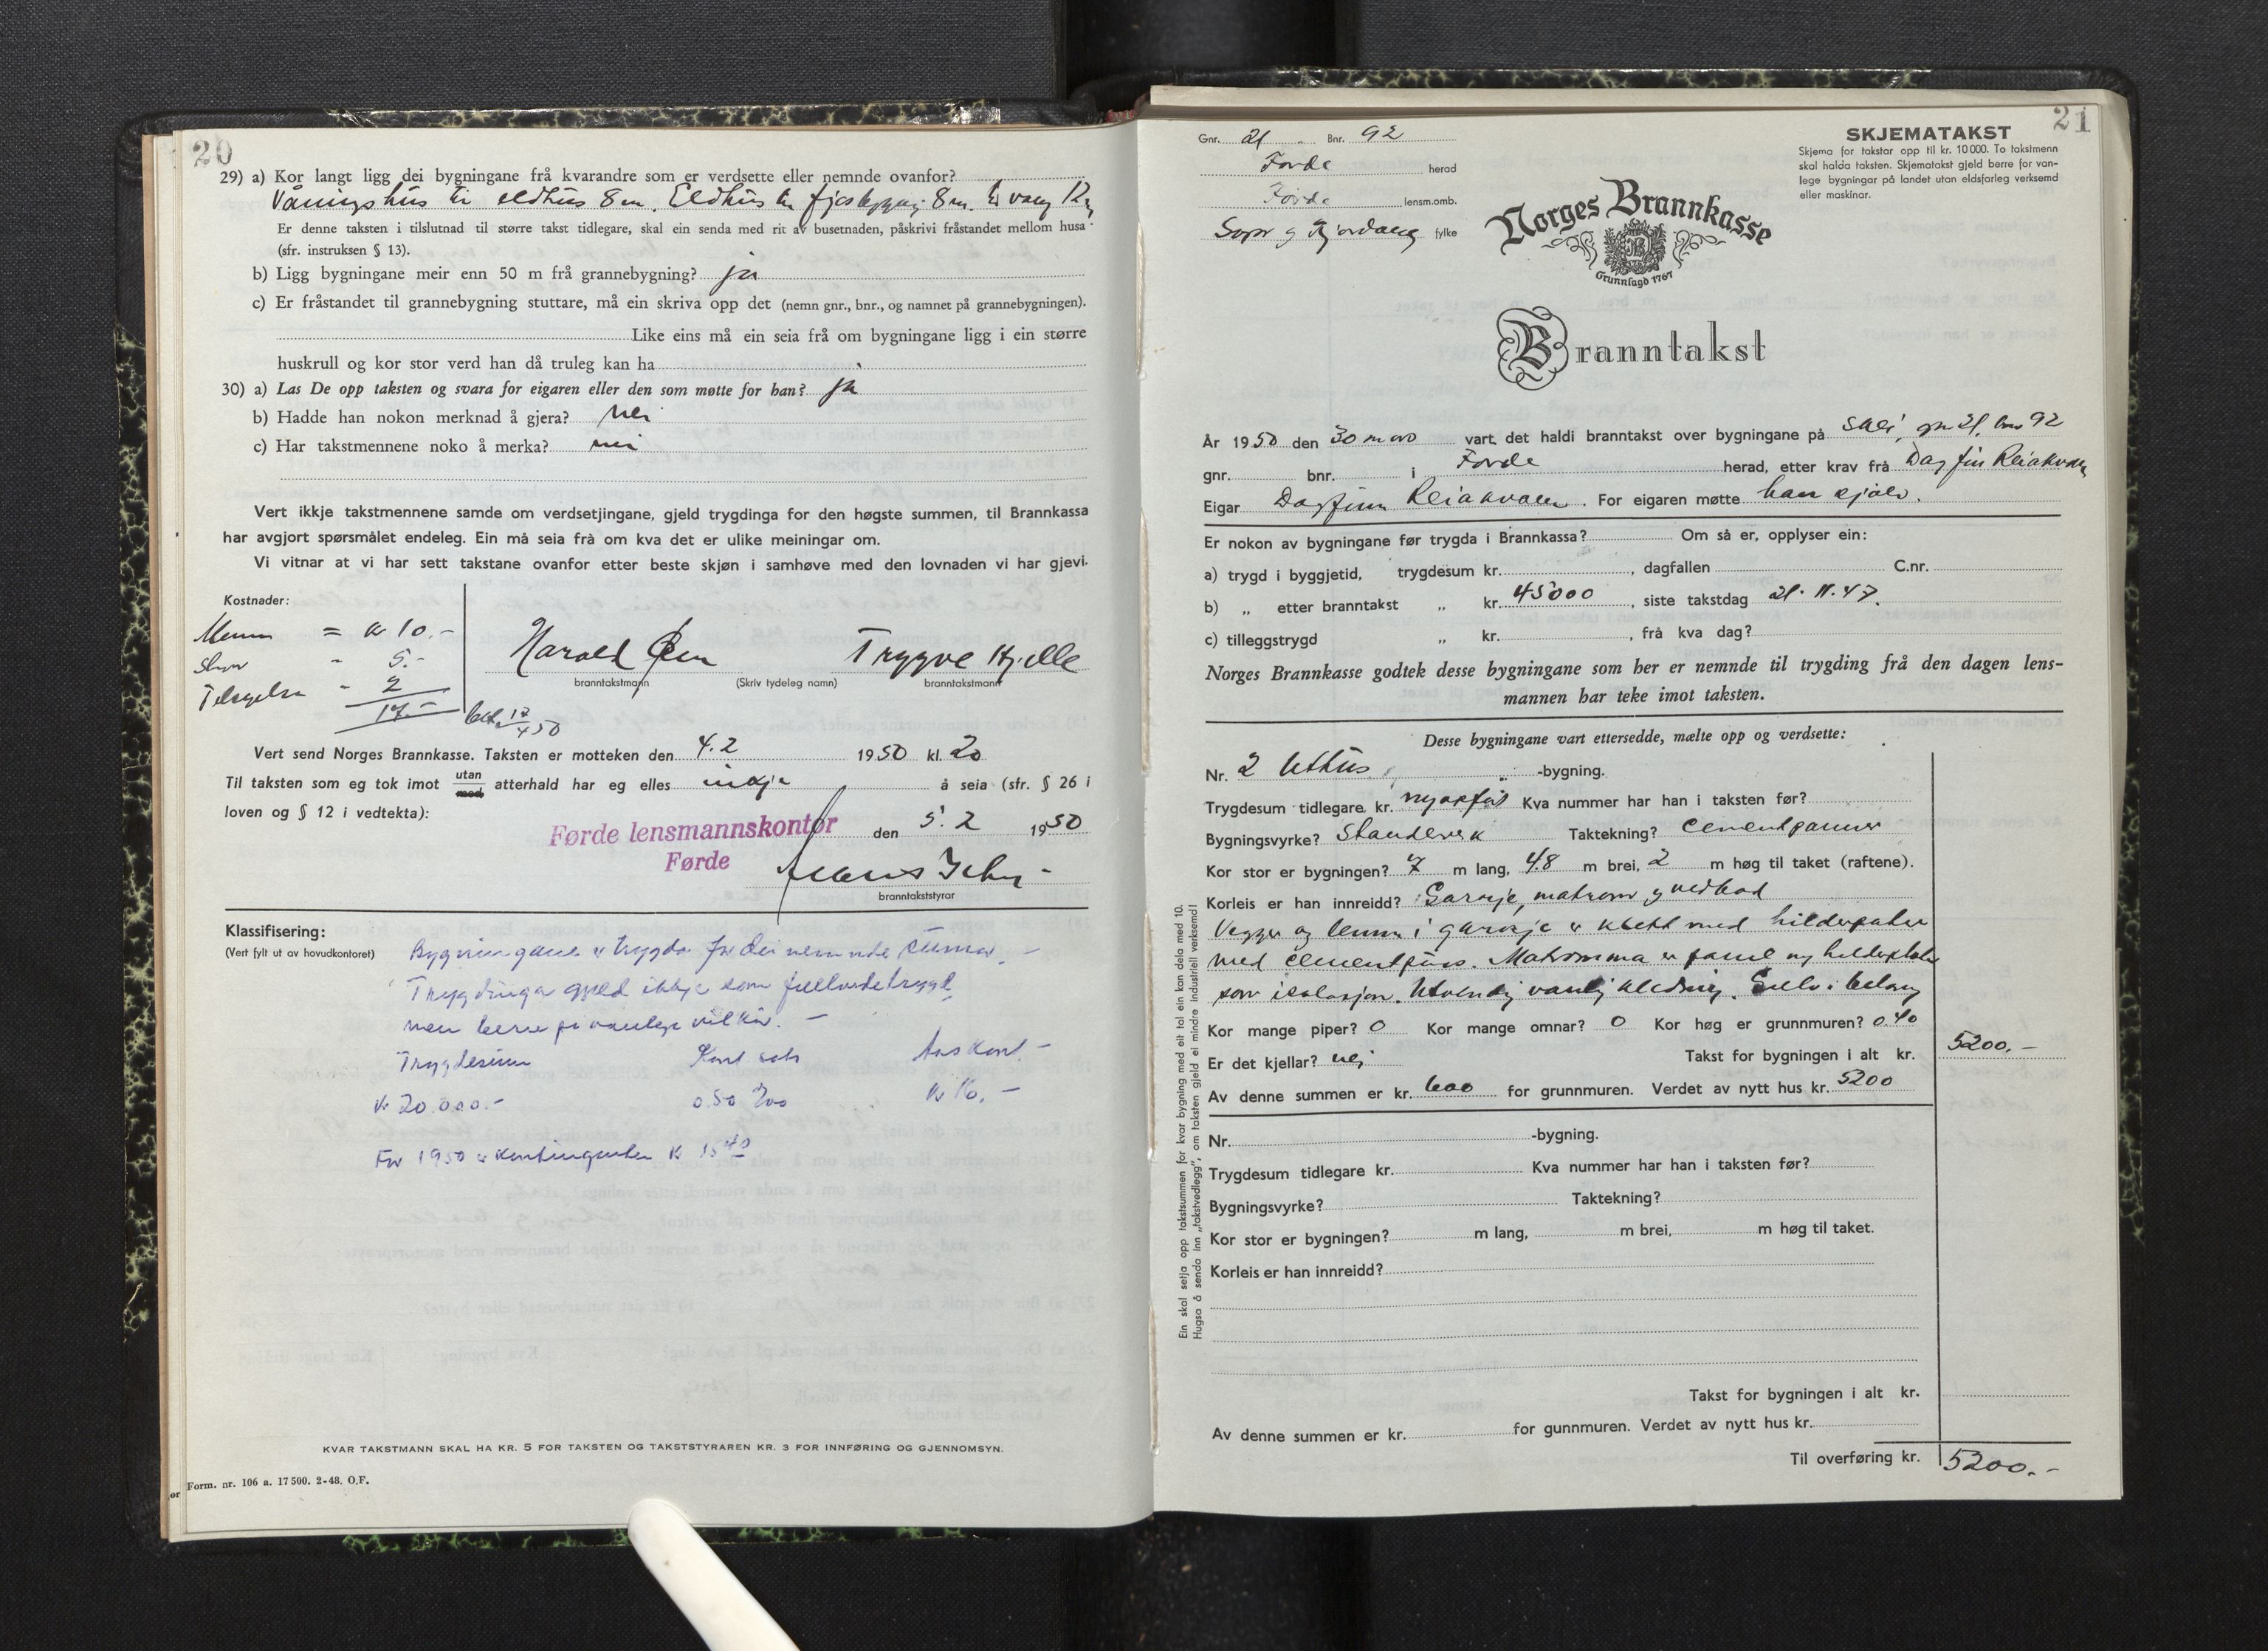 20
29) a) Kor langt ligg dei bygningane frå kvarandre som er verdsette eller nemnde ovanfor?
Våningshus til eldhus 8 m. Eldhus til fjosbygning 8 m.
Er denne taksten i tilslutnad til større takst tidlegare, skal ein senda med rit av busetnaden, påskrivi fråstandet mellom husa
(sfr. instruksen § 13).
b) Ligg bygningane meir enn 50 m frå grannebygning? ja
c) Er fråstandet til grannebygning stuttare, må ein skriva opp det (nemn gnr., bnr., og namnet på grannebygningen).
Like eins må ein seia frå om bygningane ligg i ein større
huskrull og kor stor verd han då truleg kan ha
30) a) Las De opp taksten og svara for eigaren eller den som møtte for han? ja
b) Hadde han nokon merknad å gjera? nei
c) Har takstmennene noko å merka? nei
Vert ikkje takstmennene samde om verdsetjingane, gjeld trygdinga for den høgste summen, til Brannkassa
har avgjort spørsmålet endeleg. Ein må seia frå om kva det er ulike meiningar om.
Vi vitnar at vi har sett takstane ovanfor etter beste skjøn i samhøve med den lovnaden vi har gjevi.
Kostnader:
Menn = kr 10.-
5.-
2
17.-
bet. 17/4 50
Harald Øen Trygve Hjelle
branntakstmann (Skriv tydeleg namn) branntakstmann
Vert send Norges Brannkasse. Taksten er motteken den 4.2 1950 kl. 20
Til taksten som eg tok imot utan med atterhald har eg elles inkje å seia (sfr. § 26 i
loven og § 12 i vedtekta):
Førde lensmannskontor den 5.2 1950
Førde
branntakststyrar
Klassifisering:
(Vert fylt ut av hovudkontoret)
Bygningane er trygda for dei nemnde summar.
Trygdinga gjeld ikkje som fullverdetrygd,
men berre på vanlege vilkår.
Trygdesum Kont sats Aarskont.
Kr 20.000.- 0.50 ‰ Kr 16.-
For 1950 er kontingenten kr 15 40
KVAR TAKSTMANN SKAL HA KR. 5 FOR TAKSTEN OG TAKSTSTYRAREN KR. 3 FOR INNFØRING OG GJENNOMSYN.
Form. nr. 106 a. 17 500. 2-48. O.F.
21
Gnr. 21 Bnr. 92
Førde herad
Førde lensm.omb.
Sogn og Fjordane fylke
SKJEMATAKST
Skjema for takstar opp til kr. 10 000. To takstmenn
skal halda taksten. Skjematakst gjeld berre for van-
lege bygningar på landet utan eldsfarleg verksemd
eller maskinar.
Norges Brannkasse
Grunnlagd 1767
Branntakst
År 1950 den 30 mars vart det haldi branntakst over bygningane på gnr 21, bnr 92
gnr. bnr. i Førde herad, etter krav frå Dagfinn Reiakvam
Eigar Dagfinn Reiakvam. For eigaren møtte han sjølv.
Er nokon av bygningane før trygda i Brannkassa? Om så er, opplyser ein:
a) trygd i byggjetid, trygdesum kr. , dagfallen C.nr.
b) „ etter branntakst „ kr. 45000, siste takstdag 21.11.47.
c) tilleggstrygd „ kr. , frå kva dag?
Norges Brannkasse godtek desse bygningane som her er nemnde til trygding frå den dagen lens-
mannen har teke imot taksten.
Desse bygningane vart ettersedde, mælte opp og verdsette:
Nr. 2 Uthus -bygning.
Trygdesum tidlegare kr. nyoppf. Kva nummer har han i taksten før?
Bygningsvyrke? Standerverk Taktekning? Cementpanner
Kor stor er bygningen? 7 m lang, 4.8 m brei, 2 m høg til taket (raftene).
Korleis er han innreidd? Garasje, matrom og vedbod
Vegger og lemm i garasje er kledt med hilderplater
med cementpuss. Matromma er panel og hilderplater
som isolasjon. Utvendig vanlig kledning. Gulv i betong
Kor mange piper? 0 Kor mange omnar? 0 Kor høg er grunnmuren? 0.40
Er det kjellar? nei Takst for bygningen i alt kr. 5200.-
Av denne summen er kr. 600 for grunnmuren. Verdet av nytt hus kr. 5200
Nr. -bygning.
Trygdesum tidlegare kr. Kva nummer har han i taksten før?
Bygningsvyrke? Taktekning?
Kor stor er bygningen? m lang, m brei, m høg til taket.
Korleis er han innreidd?
Takst for bygningen i alt kr.
Av denne summen er kr. for gunnmuren. Verdet av nytt hus kr.
Til overføring kr. 5200.-
Ein skal setja opp takstsummen for kvar bygning med eit tal ein kan dela med 10.
Hugsa å senda inn „takstvedlegg", om taksten gjeld ei mindre industriell verksemd!